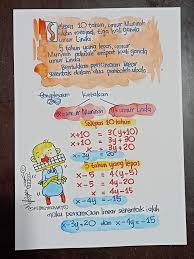 Selepas 10 tahun, umur Munirah
akan menjadi tiga kali ganda
umur Linda.
5 tahun yang lepas, umur
Munirah adalah empat kali ganda
umur Linda.
Bentukkan persamaan linear
serentak dalam dua pemboleh ubah.
Penyelesaian
Katakan
x = umur Munirah
y = umur Linda
Selepas 10 tahun
x+10 = 3(y+10)
x+10 = 3y+30
x-3y = 30-10
x-3y = 20
5 tahun yang lepas
x-5 = 4(y-5)
x-5 = 4y-20
x-4y = -20+5
x-4y = -15
maka persamaan linear serentak ialah
x-3y=20 dan x-4y=-15